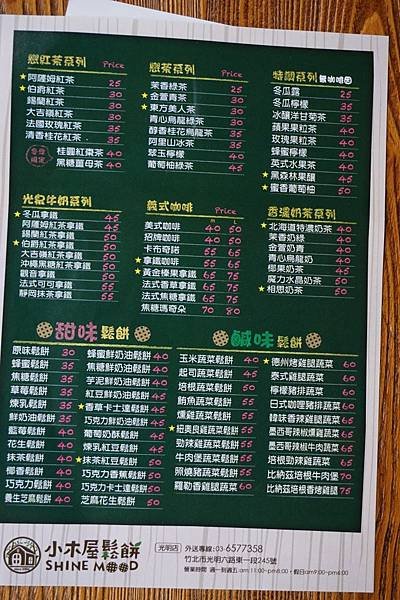 戀紅茶系列 Price
★阿薩姆紅茶 25
★伯爵紅茶 30
錫蘭紅茶 30
大吉嶺紅茶 30
法國玫瑰紅茶 35
清香桂花紅茶 35
冬季限定
桂圓紅棗茶 40
黑糖薑母茶 40
戀茶系列 Price
茉香綠茶 25
★金萱青茶 30
★東方美人茶 30
青心烏龍茶 30
醇香桂花烏龍茶 35
阿里山冰茶 35
翠玉檸檬 40
葡萄柚綠茶 45
特調系列 無咖啡因
冬瓜露 25
冬瓜檸檬 35
冰釀洋甘菊茶 35
蘋果果粒茶 40
玫瑰果粒茶 40
蜂蜜檸檬 40
英式水果茶 40
★黑森林果釀 45
★蜜香葡萄柚 50
光泉牛奶系列
★冬瓜拿鐵 45
阿薩姆紅茶拿鐵 45
錫蘭紅茶拿鐵 50
★伯爵紅茶拿鐵 50
大吉嶺紅茶拿鐵 50
沖繩黑糖紅茶拿鐵 50
觀音拿鐵 50
法式可可拿鐵 55
靜岡抹茶拿鐵 55
義式咖啡 Price
美式咖啡 40 50
招牌咖啡 40 50
卡布奇諾 55 65
★拿鐵咖啡 55 65
★黃金榛果拿鐵 65 75
法式香草拿鐵 65 75
法式焦糖拿鐵 65 75
焦糖瑪奇朵 70 80
香濃奶茶系列
★北海道特濃奶茶 40
茉香奶綠 40
金萱奶青 40
青心烏龍奶 40
椰果奶茶 45
魔力水晶奶茶 50
★相思奶茶 50
甜味鬆餅
原味鬆餅 30
蜂蜜鬆餅 35
焦糖鬆餅 35
草莓鬆餅 35
煉乳鬆餅 35
鮮奶油鬆餅 35
藍莓鬆餅 40
花生鬆餅 40
抹茶鬆餅 40
椰香鬆餅 40
巧克力鬆餅 40
養生芝麻鬆餅 40
蜂蜜鮮奶油鬆餅 40
焦糖鮮奶油鬆餅 40
芋泥鮮奶油鬆餅 40
紅豆鮮奶油鬆餅 45
★香草卡士達鬆餅 45
巧克力鮮奶油鬆餅 45
葡萄奶酥鬆餅 45
煉乳紅豆鬆餅 45
★抹茶紅豆鬆餅 50
巧克力香蕉鬆餅 50
巧克力卡士達鬆餅 50
芝麻花生鬆餅 50
鹹味鬆餅
玉米蔬菜鬆餅 40
起司蔬菜鬆餅 45
培根蔬菜鬆餅 50
鮪魚蔬菜鬆餅 55
燻雞蔬菜鬆餅 55
★招奧良雞腿蔬菜鬆餅 55
勁辣雞腿蔬菜鬆餅 55
牛肉堡蔬菜鬆餅 55
照燒豬蔬菜鬆餅 55
羅勒香雞腿蔬菜 60
★德州烤雞腿蔬菜 60
泰式雞腿蔬菜 60
檸檬豬排蔬菜 60
日式咖哩豬排蔬菜 60
韓味香辣雞腿蔬菜 60
墨西哥辣椒燻雞蔬菜 60
墨西哥辣椒牛肉蔬菜 60
培根勁辣雞腿蔬菜 65
比納茲培根牛肉堡 70
比納茲培根香烤雞腿 75
小木屋鬆餅
SHINE MOOD
光明店 外送專線:03-6577358
竹北市光明六路東一段245號
營業時間 週一到週五:am:11:00~pm-8:00，假日am9:00~pm6:00